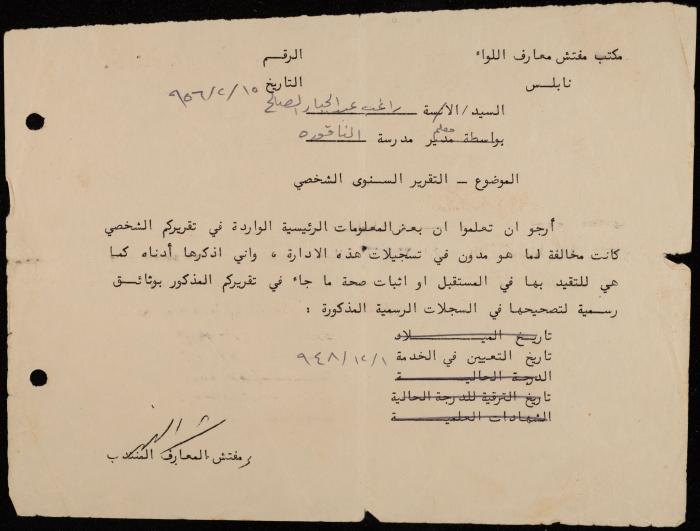 مكتب مفتش معارف اللواء الرقم
نابلس التاريخ ٩٥٦/٢/١٥
السيد/الآنسة راغب عبد الجبار الصالح
بواسطة مدير معلم مدرسة الناقوره
الموضوع ــ التقرير السنوى الشخصي
أرجو ان تعلموا ان بعض المعلومات الرئيسية الواردة في تقريركم الشخصي
كانت مخالفة لما هو مدون في تسجيلات هذه الادارة ، واني اذكرها أدناه كما
هي للتقيد بها في المستقبل او اثبات صحة ما جاء في تقريركم المذكور بوثائــق
رسمية لتصحيحها في السجلات الرسمية المذكورة :
تاريخ الميــــــــلاد
تاريخ التعيين في الخدمة ٩٤٨/١٢/١
الدرجة الحاليـــــــــة
تاريخ الترقية للدرجة الحالية
الشهادات العلميــــــة
مفتش المعارف المنتدب